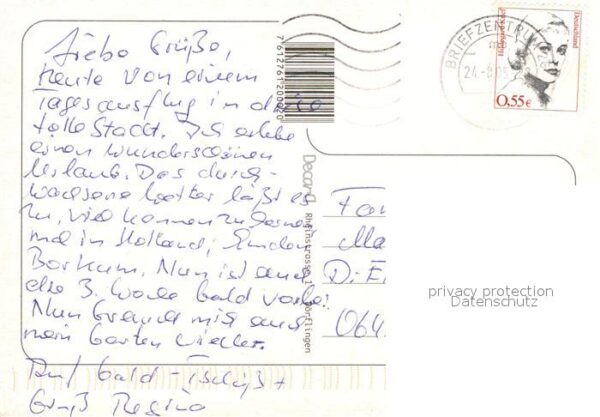 Liebe Grüße,
heute von einem
Tagesausflug in diese
tolle Stadt. Ich erlebe
einen wunderschönen
Urlaub. Das durch-
wachsene Wetter läßt es
zu, viel kennen zu lernen
mal in Holland, Emden
Borkum. Nun ist auch
die 3. Woche bald vorbei
Nun freund mich auch
mein Garten wieder.
Auf bald - Tschüß +
Gruß Regina
7612761200020
Decora Rheinstrasse Dörflingen
BRIEFZENTRUM
mb
24.-8.05
Deutschland
0,55€
Fam
Ma
D-E
064
privacy protection
Datenschutz